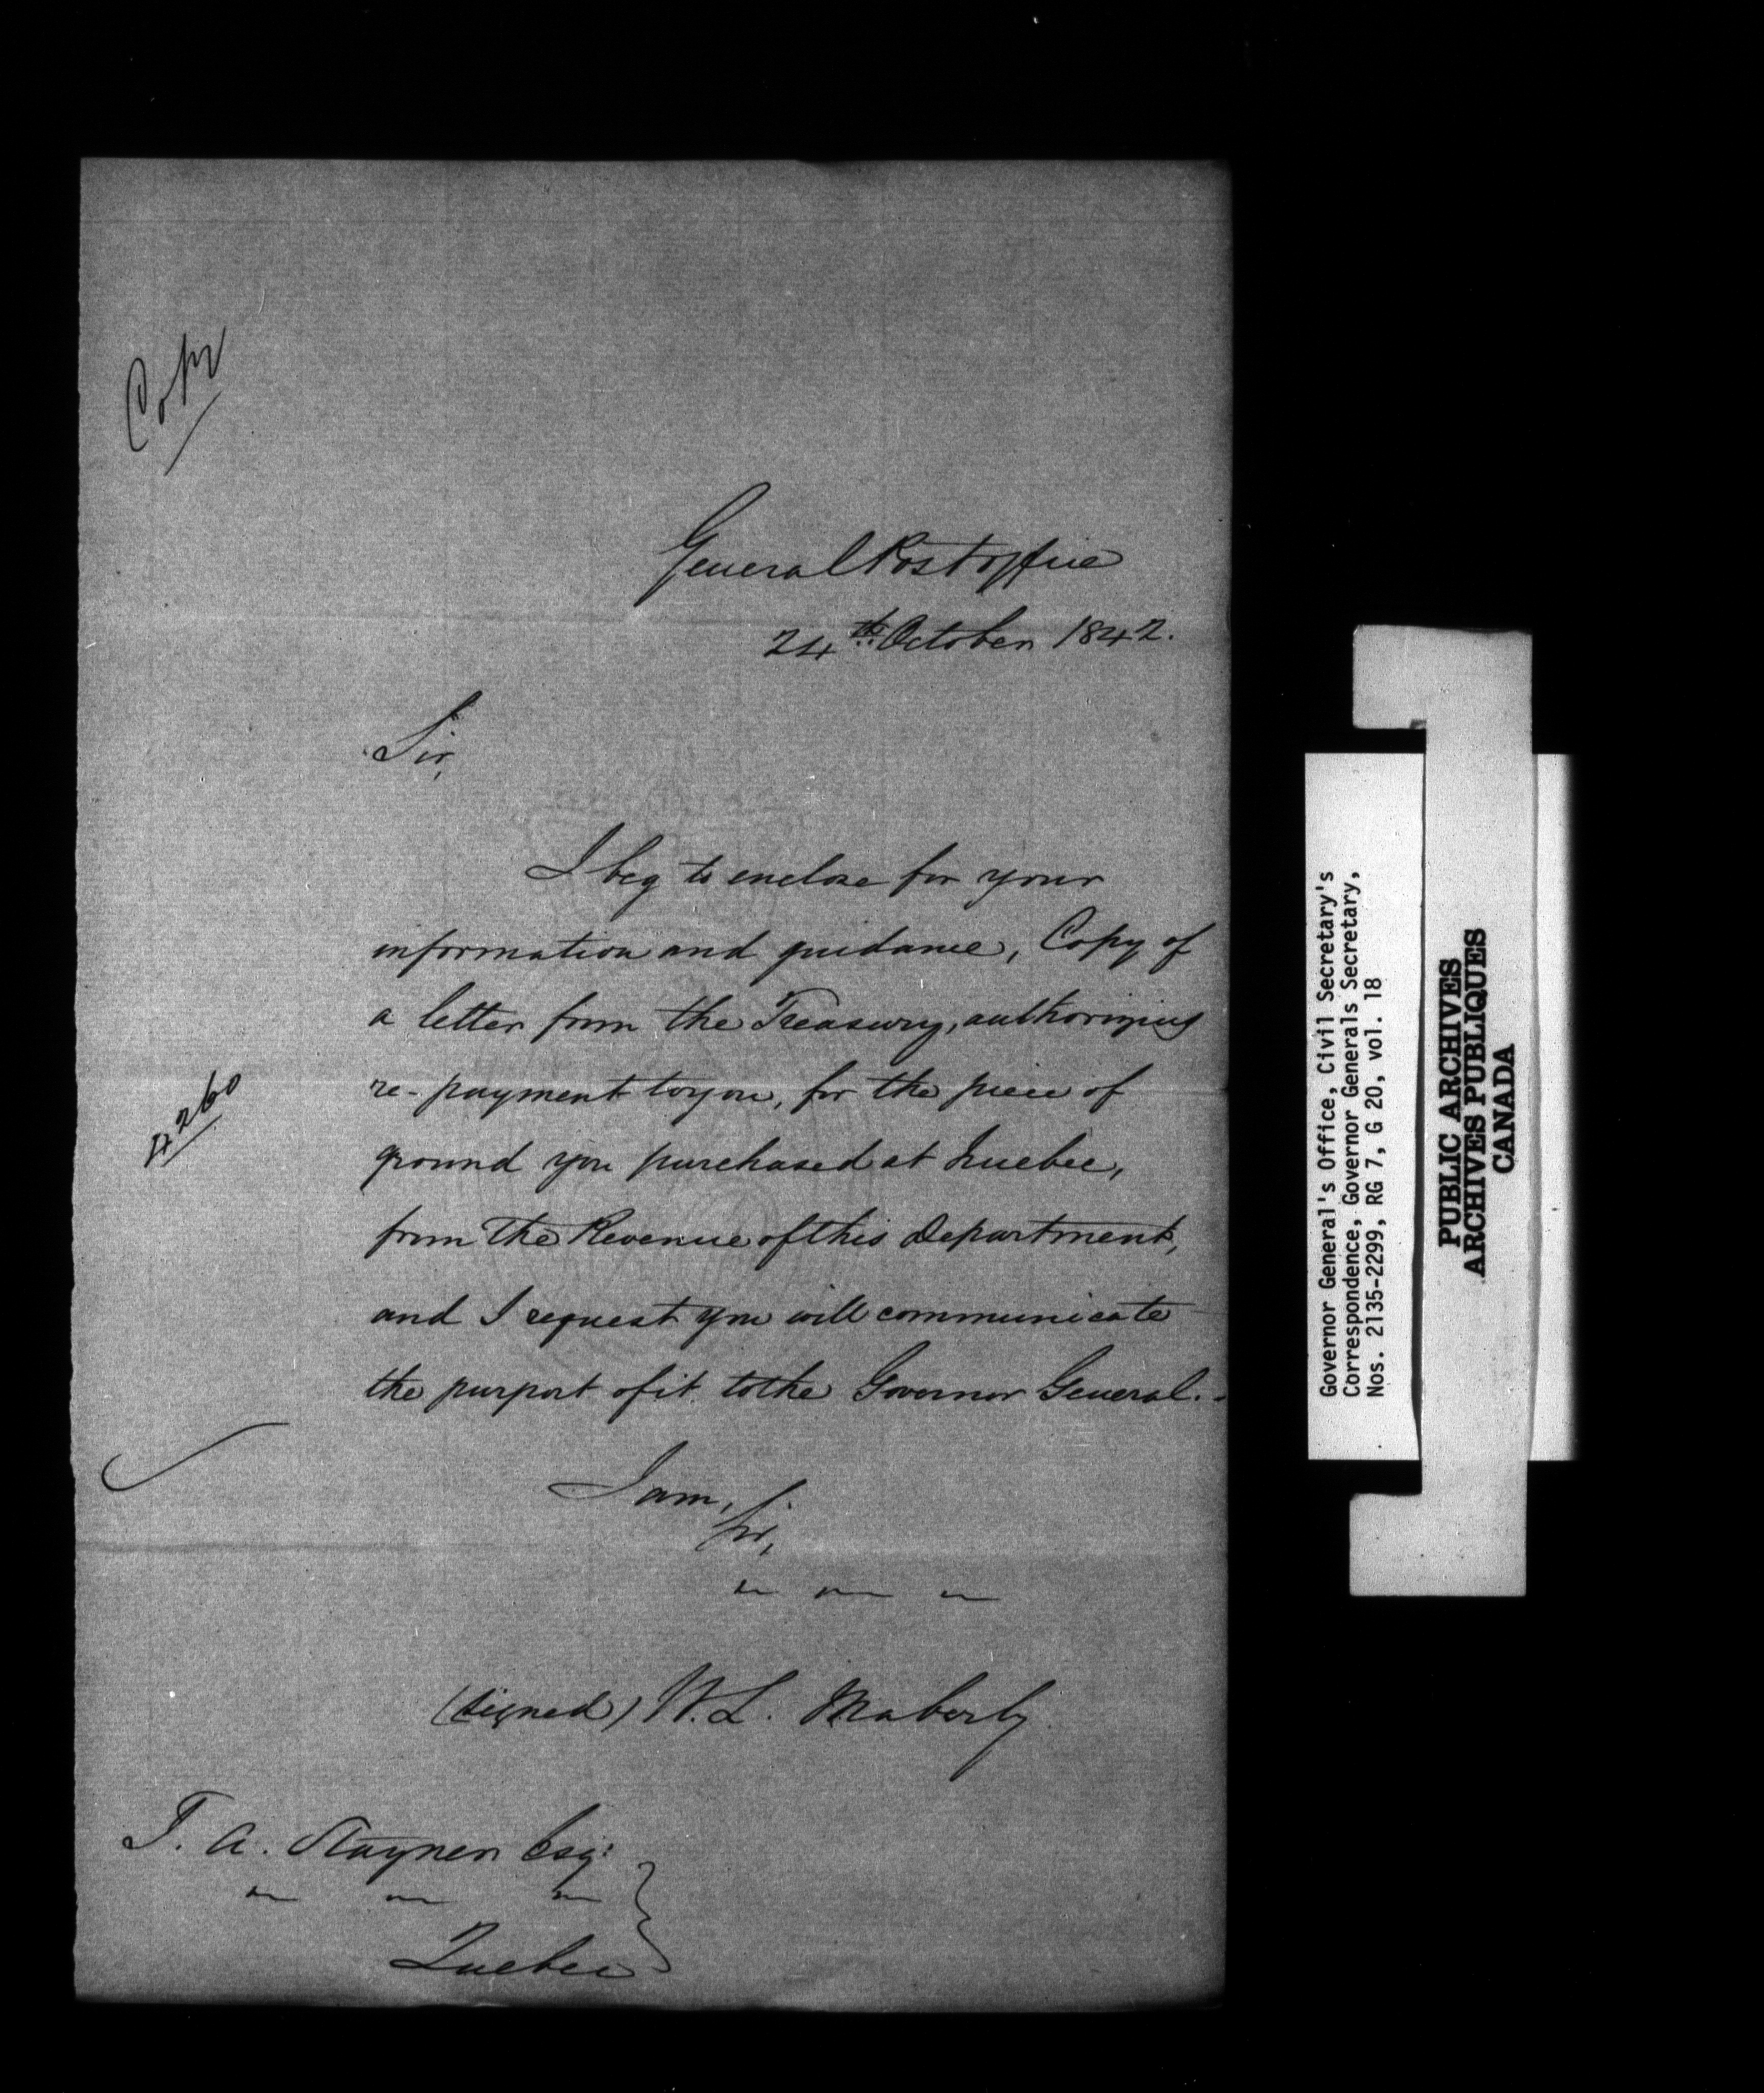 Copy
General Post office
24th October 1842.
Sir,
I beg to enclose for your
information and guidance, Copy of
a letter from the Treasury, authorizing
re-payment to you, for the piece of
ground you purchased at Quebec,
from the Revenue of this Department,
and I request you will communicate
the purport of it to the Governor General.
2260
I am,
Sir,
(signed) W. L. Maberly
T. A. Stayner Esqr
Quebec
Governor General's Office, Civil Secretary's
Correspondence, Governor Generals Secretary,
Nos. 2135-2299, RG 7, G 20, vol. 18
PUBLIC ARCHIVES
ARCHIVES PUBLIQUES
CANADA